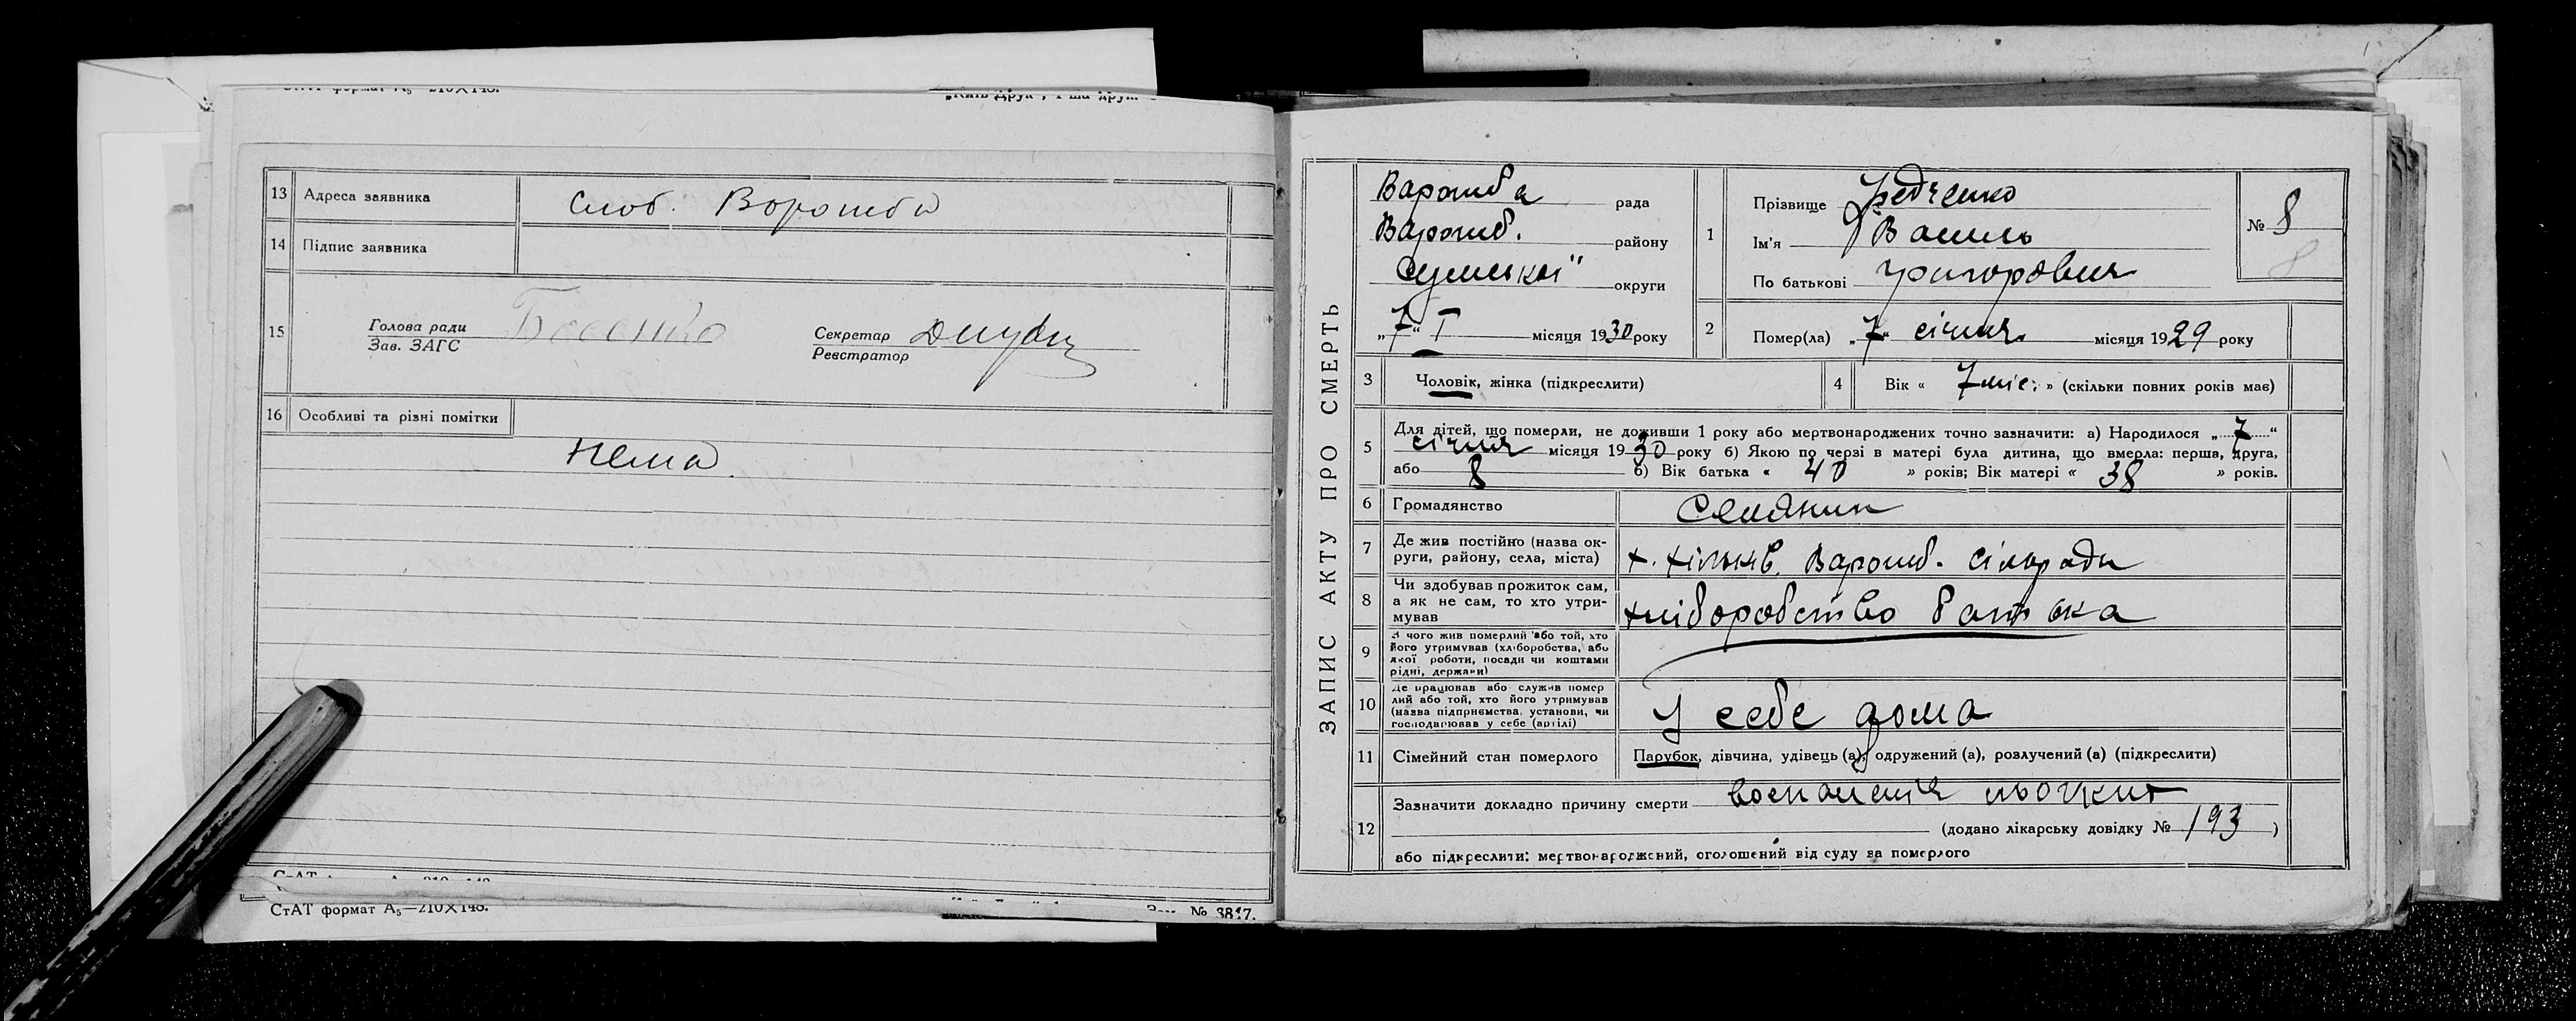 СтАТ формат А₅—210✕148.
„Київ-Друк", 1-ша друк.
13 Адреса заявника Слоб. Ворожба
14 Підпис заявника
15 Голова ради
Зав. ЗАГС
Секретар
Реєстратор
16 Особливі та різні помітки
Нема
СтАТ формат А₅—210✕148.
Зам. № 3847.
ЗАПИС АКТУ ПРО СМЕРТЬ
Варожба рада
Варожб. району
Сумської округи
„7" I місяця 1930 року
1 Прізвище Федченко
Ім'я Василь
По батькові Григорович
№ 8
8
2 Помер(ла) „7" січня місяця 1929 року
3 Чоловік, жінка (підкреслити)
4 Вік « 7 міс. » (скільки повних років має)
5 Для дітей, що померли, не доживши 1 року або мертвонароджених точно зазначити: а) Народилося „7"
січня місяця 1930 року б) Якою по черзі в матері була дитина, що вмерла: перша, друга,
або 8 б) Вік батька « 40 » років; Вік матері « 38 » років.
6 Громадянство Селянин
7 Де жив постійно (назва ок-
руги, району, села, міста) Варожб. сільради
8 Чи здобував прожиток сам,
а як не сам, то хто утри-
мував хліборобство батька
9 З чого жив померлий або той, хто
його утримував (хліборобства, або
якої роботи, посади чи коштами
рідні, держави)
10 Де працював або служив помер
лий або той, хто його утримував
(назва підприємства, установи, чи
господарював у себе (артілі) У себе дома
11 Сімейний стан померлого Парубок, дівчина, удівець (а), одружений (а), розлучений (а) (підкреслити)
12 Зазначити докладно причину смерти восполения
(додано лікарську довідку № 193 )
або підкреслити: мертвонароджений, оголошений від суду за померлого